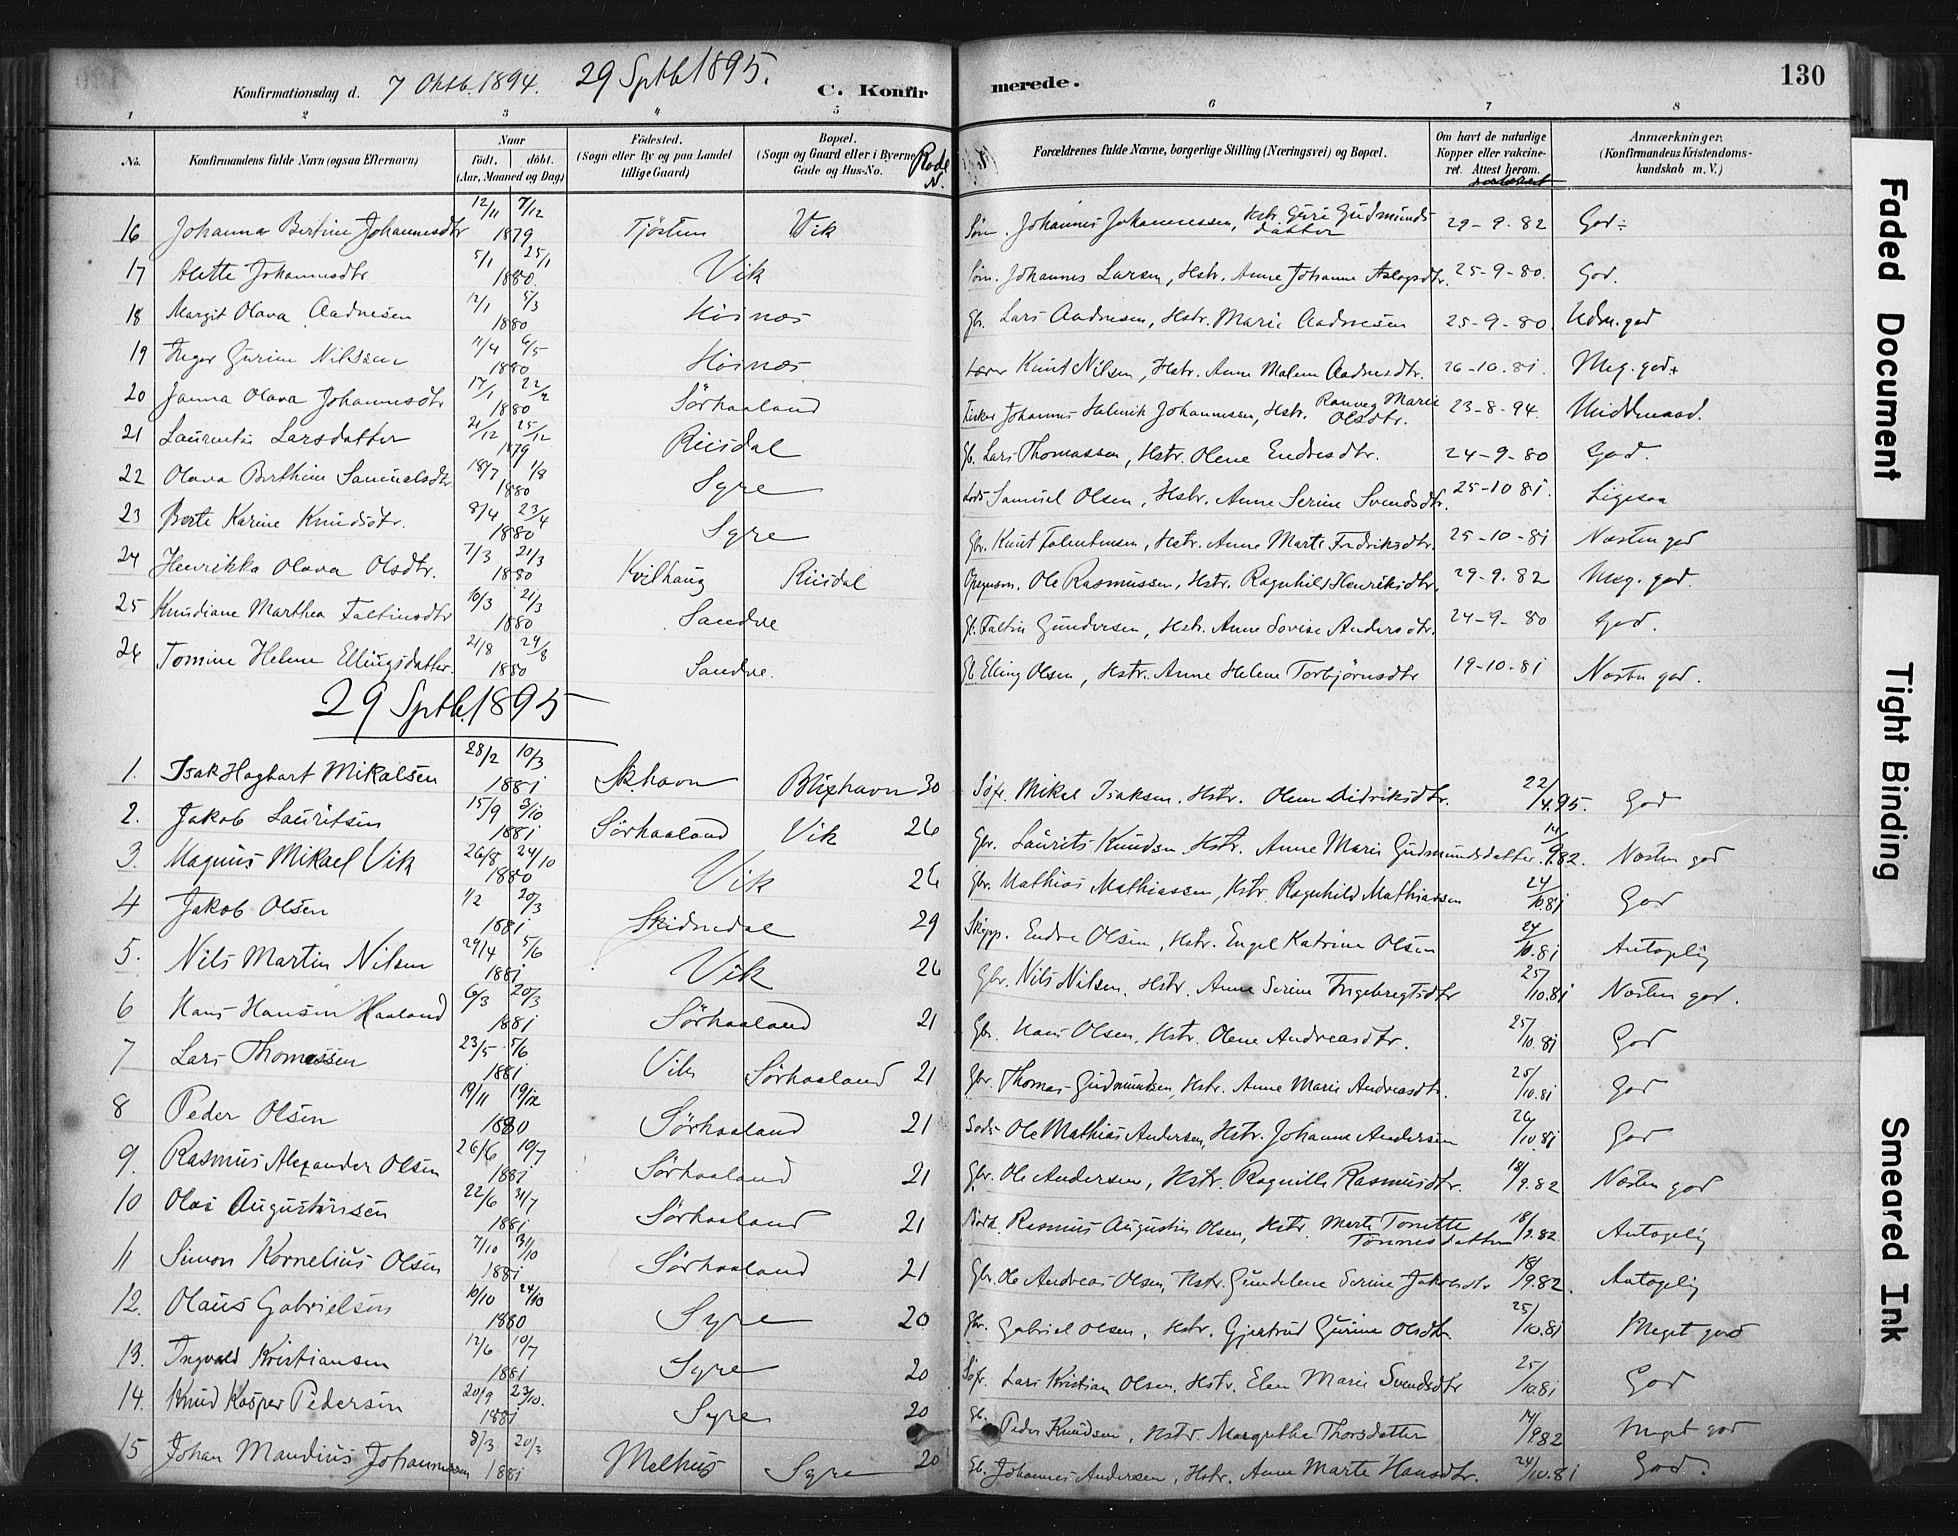 Konfirmationsdag d. 7 Oktb. 1894. 29 Sptb 1895. C. Konfirmerede. 130
1 2 3 4 5 6 7 8
No. Konfirmandens fulde Navn (ogsaa Efternavn) Naar födt. döbt. (Aar, Maaned og Dag) Födested. (Sogn eller By og paa Landet tillige Gaard) Bopæl. (Sogn og Gaard eller i Byerne Gade og Hus-No.) Rode N. Forældrenes fulde Navne, borgerlige Stilling (Næringsvei) og Bopæl. Om havt de naturlige Kopper eller vakcineret. Attest herom. Anmærkninger. (Konfirmandens Kristendomskundskab m. V.)
16 Johanna Bertine Johannesdtr 12/11 7/12 1879 Tjösten Vik Johannes Johannessen, Hstr. Guri Gudmundsdatter 29-9.82 God
17 Alette Johannesdtr 5/1 25/1 1880 Vik Johannes Larsen, Hstr. Anne Johanne Aslagsdtr. 25-9-80. God.
18 Margit Olava Aadnesen 12/1 5/3 1880 Höinæs Gb. Lars Aadnesen, Hstr. Marie Aadnesen 25-9-80. Udm. god
19 Inger Gurine Nilssen 11/4 6/5 1880 Höinæs Knut Nilsen, Hstr. Anne Malene Aadnesdtr. 26-10.81. Meg. god
20 Janna Olava Johannesdtr 17/1 22/2 1880 Sörhaaland Johannes Helmik Johannessen, Hstr. Ranveg Marie Olsdtr. 23-8-94.
21 Laurentse Larsdatter 21/12 25/12 1879 Riisdal Gb. Lars Thomassen, Hstr. Olene Endresdtr. 24-9-80 God.
22 Olava Berthine Samuelsdtr 18/7 1/8 1880 Syre Samuel Olsen, Hstr. Anne Serine Svendsdtr. 25-10 81. Ligesaa
23 Berte Karine Knudsdtr. 8/4 23/4 1880 Syre Gbr. Knut Falentinsen, Hstr. Anne Marte Fredriksdtr. 25-10-81 Næsten god
24 Henrikka Olava Olsdtr. 7/3 21/3 1880 Kvilhaug Riisdal Ole Rasmussen, Hstr. Ragnhild Henriksdtr. 29-9.82 Meg. god.
25 Knudiane Marthea Faltinsdtr 10/3 21/3 1880 Sandve Gb. Faltin Gundersen, Hstr. Anne Lovise Andersdtr. 24-9-80 God.
26 Tomine Helene Ellingsdatter. 21/8 29/8 1880 Sandve. Gb. Elling Olsen, Hstr. Anne Helene Torbjörnsdtr 19-10.81 Næsten god.
29 Sptb. 1895
1. Isak Hagbart Mikalsen 28/2 10/3 1881 Blixhavn 30 Mikal Isaksen. Hstr. Olene Didriksdtr. 22/4.95. God
2. Jakob Lauritsen 15/9 3/10 1881 Sörhaaland Vik 26 Gbr. Laurits Knudsen Hstr. Anne Marie Gudmundsdatter. 14/9.82. Næsten god
3. Magnus Mikael Vik 26/8 24/10 1880 Vik 26 Gbr. Mathias Mathiassen, Hstr. Ragnhild Mathiassen 24/10 81 God
4 Jakob Olsen 1/2 20/3 1881 Skidnedal 29 Skipp. Endre Olsen, Hstr. Engel Katrine Olsen 24/10.81 Antagelig
5. Nils Martin Nilsen 29/4 5/6 1881 Vik 26 Gbr. Nils Nilsen. Hstr. Anne Serine Ingebregtsdtr 25/10.81 Næsten god.
6 Hans Hansen Haaland 6/3 20/3 1881 Sörhaaland 21 Gbr. Hans Olsen, Hstr. Olene Andreasdtr. 25/10.81 God
7 Lars Thomassen 23/5 5/6 1881 Vik Sörhaaland 21 Gbr. Thomas Gudmundsen, Hstr. Anne Marie Andreasdtr. 25/10.81 God
8 Peder Olsen 19/11 19/12 1880 Sörhaaland 21 Ole Mathias Andersen, Hstr. Johanne Andersen 26/10.81 God
9. Rasmus Alexander Olsen 26/6 10/7 1881 Sörhaaland 21 Gbr. Ole Andersen, Hstr. Ragnille Rasmusdtr. 18/9.82 Næsten god
10 Olai Augustinsen 22/6 31/7 1881 Sörhaaland 21 Rasmus Augustin Olsen, Hstr. Marte Tonette Tönnesdatter 18/9.82. Antagelig
11 Simon Kornelius Olsen 7/10 31/10 1881 Sörhaaland 21 Gbr. Ole Andreas Olsen, Hstr. Gundelene Serine Jakobsdtr 18/9.82. Antagelig
12. Olaus Gabrielsen 10/10 24/10 1880 Syre 20 Gbr. Gabriel Olsen, Hstr. Gjertrud Gurine Olsdtr. 25/10.81 Meget god
13. Ingvald Kristiansen 12/6 10/7 1881 Syre 20 Lars Kristian Olsen. Hstr. Elen Marie Svendsdtr 25/10.81 God
14. Knud Kasper Pedersen 20/9 23/10. 1881 Syre 20 Gb. Peder Knudsen, Hstr. Margrethe Thorsdatter 14/9.82 Meget god
15 Johan Mandius Johannessen 8/3 20/3 1881 Melhus Syre 20 Gb. Johannes Andersen, Hstr. Anne Marte Hansdtr. 24/10.81 God.
Faded Document
Tight Binding
Smeared Ink